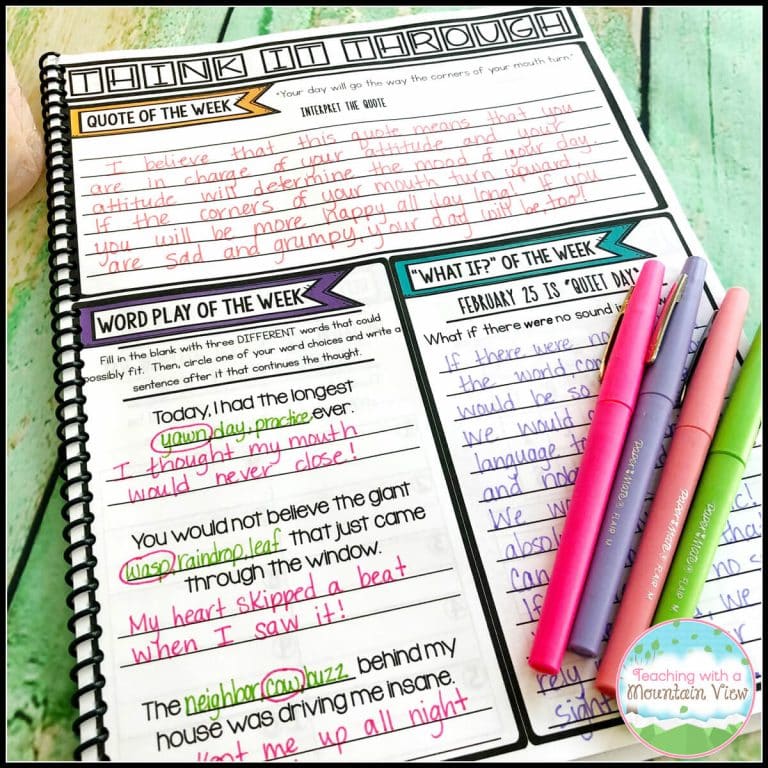 THINK IT THROUGH
QUOTE OF THE WEEK
"Your day will go the way the corners of your mouth turn."
INTERPRET THE QUOTE
I believe that this quote means that you
are in charge of your attitude and your
attitude will determine the mood of your day.
If the corners of your mouth turn upward,
you will be more happy all day long! If you
are sad and grumpy, your day will be, too!
WORD PLAY OF THE WEEK
Fill in the blank with three DIFFERENT words that could
possibly fit. Then, circle one of your word choices and write a
sentence after it that continues the thought.
Today, I had the longest
yawn, day, practice ever.
I thought my mouth
would never close!
You would not believe the giant
wasp, raindrop, leaf that just came
through the window.
My heart skipped a beat
when I saw it!
The neighbor, cow, buzz behind my
house was driving me insane.
me up all night
"WHAT IF?" OF THE WEEK
FEBRUARY 25 IS "QUIET DAY"
What if there were no sound i
If there were no
the world
would be so
we would
language to
and
We wo
absol
can
If
we
rely
sight
Paper Mate FLAIR M
Paper Mate FLAIR M
Paper Mate FLAIR M
Paper Mate FLAIR M
Teaching with a
Mountain View